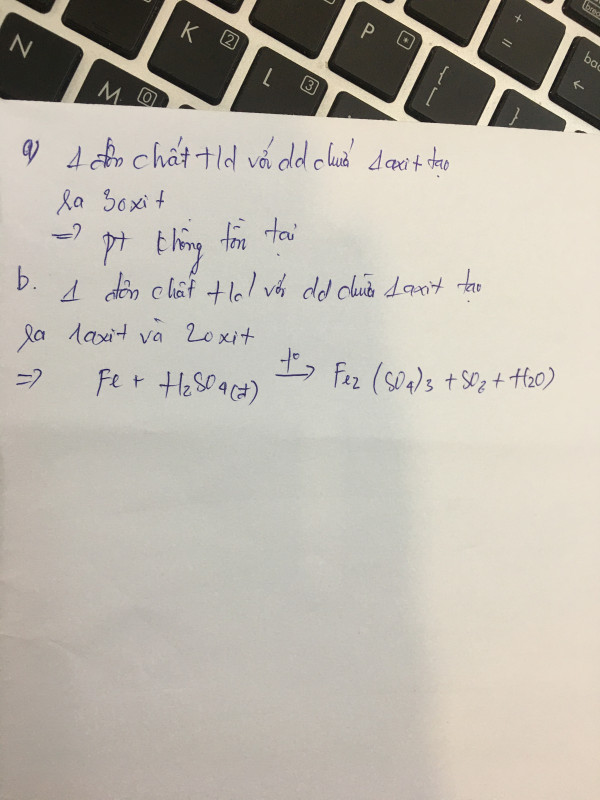 N
K
2
P
*
+
=
{
[
}
bac
←
M
0
L
3
a) 1 đơn chất t/d với dd chứa 1 axit tạo
ra 3 oxit
=> pt không tồn tại
b. 1 đơn chất t/d với dd chứa 1 axit tạo
ra 1 axit và 2 oxit
=> Fe + H2SO4(đ) t° → Fe2(SO4)3 + SO2 + H2O